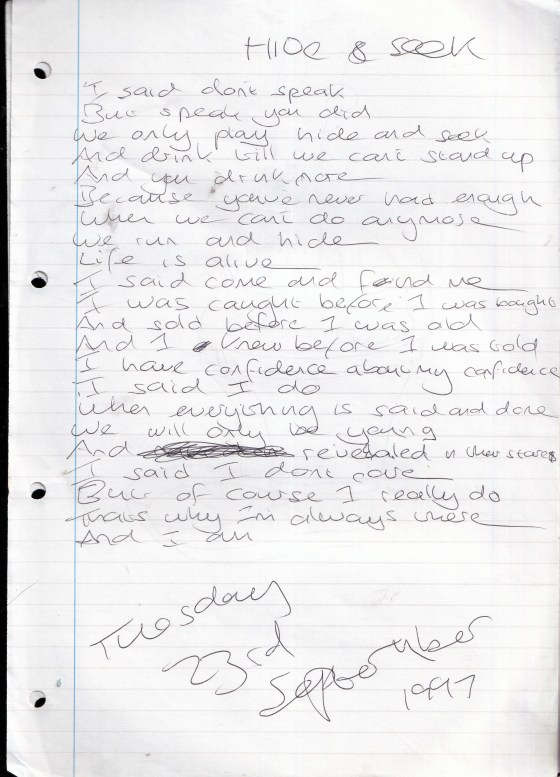 HIDE & SEEK
I said dont speak
But speak you did
We only play hide and seek
And drink till we cant stand up
And you drink more
Because youve never had enough
When we cant do anymore
We run and hide
Life is alive
I said come and found me
I was caught before I was bought
And sold before I was old
And I knew before I was told
I have confidence about my confidence
I said I do
When everything is said and done
We will only be young
And revealed in
I said I dont care
But of course I really do
Thats why Im always there
And I am
Tuesday
23rd
September
1997